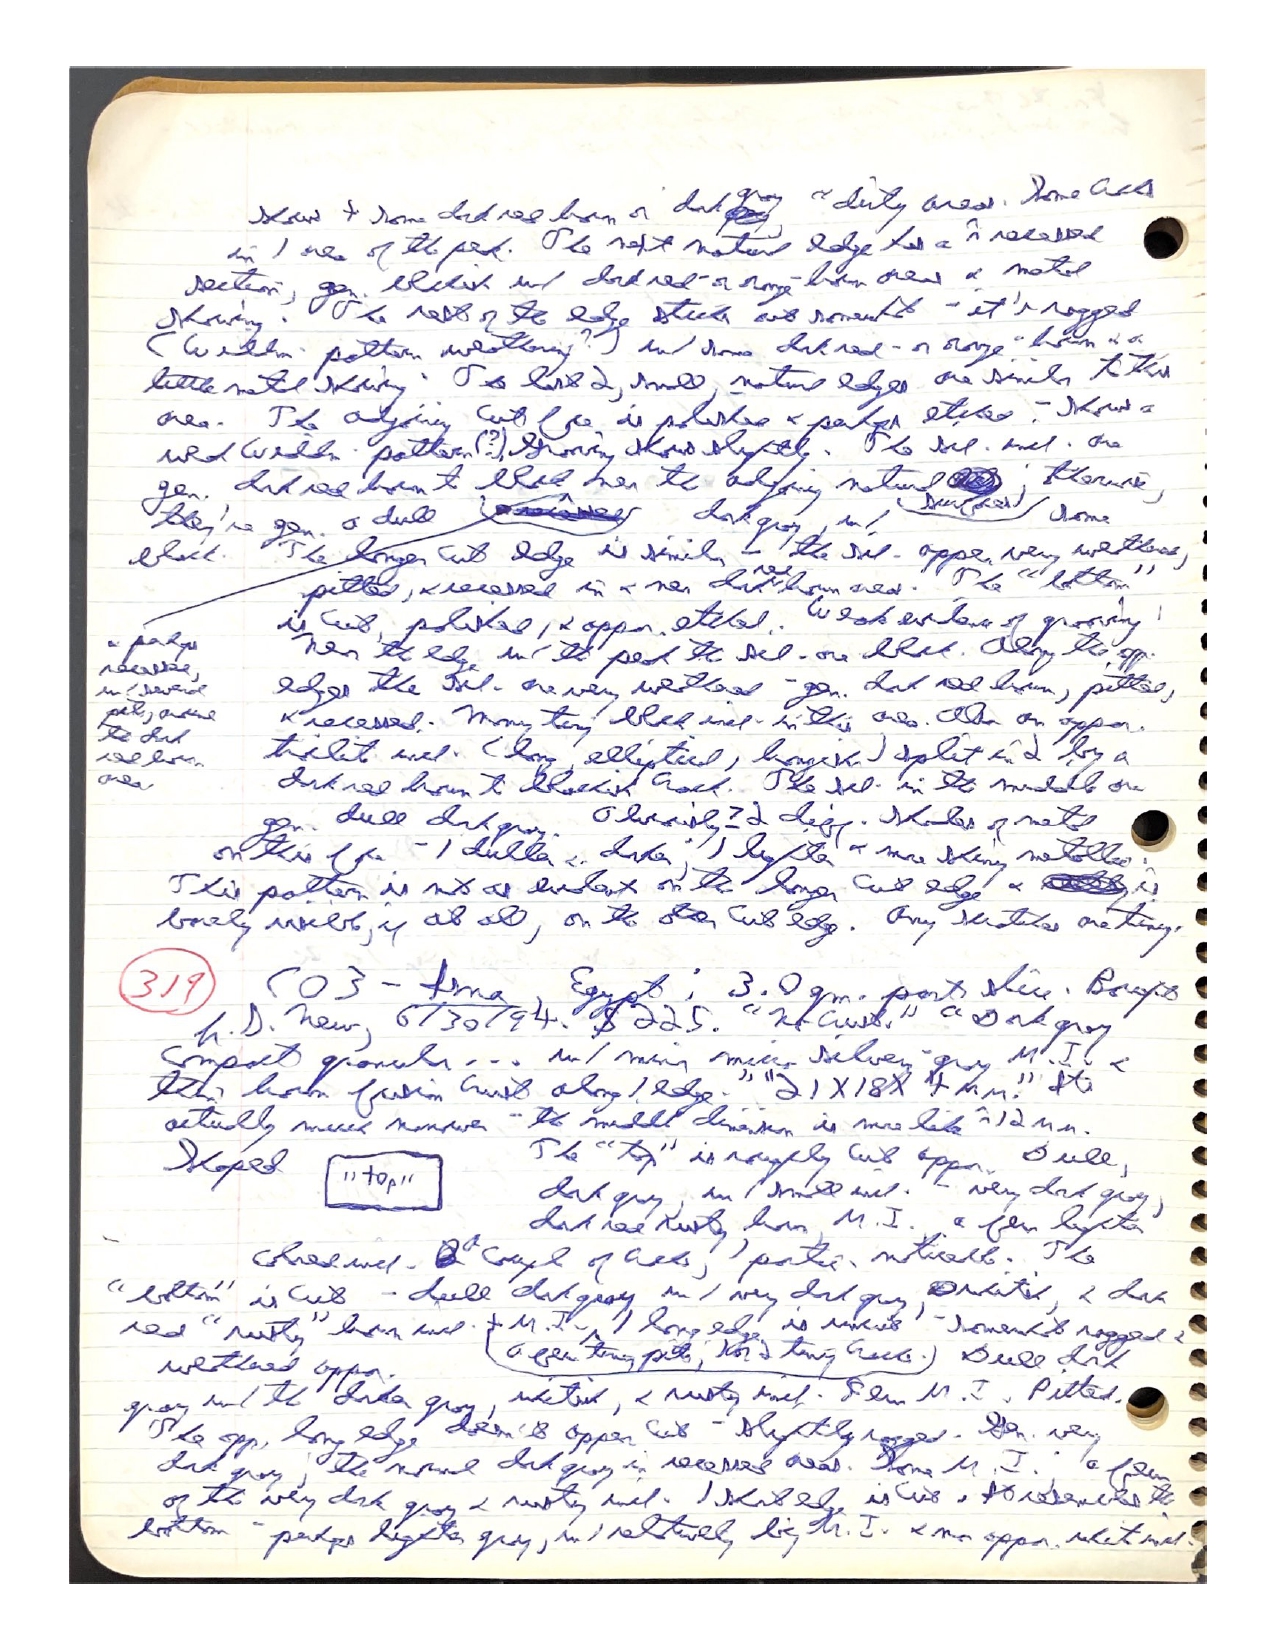 shows + some dark red brown or dark gray "dirty areas. Some cracks
in 1 area of the peak. The next natural edge has a ^ recessed
section, gen. blackish w/ dark red- or orange-brown areas & metal
showing. The rest of the edge sticks out somewhat - it's ragged
(Widdm. pattern weathering?) w/ some dark red- or orange-brown & a
little metal showing. The last 2, small, natural edges are similar to this
one. The adjoining cut face is polished & perhaps etched - shows a
weak Widdm. pattern (?). Grooving shows slightly. The sil. incl. are
gen. dark red brown to black near the adjoining natural surfaces; otherwise,
they're gen. a dull dark gray, w/ some
black. The longer cut edge is similar - the sil. appear very weathered,
pitted, & recessed in & near dark red brown area. The "bottom"
is cut, polished, & appar. etched. Weak evidence of grooving.
Near the edge w/ the peak the sil. are black. Along the opp.
& perhaps
recessed,
w/ several
pits, around
the dark
red brown
area.
edges the sil. are very weathered - gen. dark red brown, pitted,
& recessed. Many tiny black incl. in this area. Also an appar.
troilite incl. (long, elliptical, bronzish) split in 2 by a
dark red brown to blackish crack. The sil. in the middle are
gen. dull dark gray. Obviously? 2 diff. shades of metal
on this face - 1 duller & darker, 1 lighter & more shiny metallic.
This pattern is not as evident on the longer cut edge & is
barely visible, if at all, on the other cut edge. Any scratches are tiny.
319 CO3 - Isna, Egypt; 3.0 gm. part slice. Bought
fr. D. New, 6/30/94. $225. "No Crust." "Dark gray
compact granular ... w/ minor micro silvery-gray M.I. &
thin brown fusion crust along 1 edge." "21 X 18 X 4 mm." It's
actually much narrower - the middle dimension is more like ~12 mm.
Shaped "top" The "top" is roughly cut appar. Dull,
dark gray, w/ small incl. - very dark gray,
dark red rusty brown, M.I., a few lighter
colored incl. A couple of cracks, 1 partic. noticeable. The
"bottom" is cut - dull dark gray w/ very dark gray, whitish, & dark
red "rusty" brown incl. + M.I. 1 long edge is uncut - somewhat ragged &
(a few tiny pits, 1 or 2 tiny cracks.)
weathered appar. Dull dark
gray w/ the darker gray, whitish, & rusty incl. Few M.I. Pitted.
The opp. long edge doesn't appear cut - slightly ragged. Gen. very
dark gray; the normal dark gray in recessed areas. Some M.I., a few
of the very dark gray & rusty incl. 1 short edge is cut & resembles the
bottom - perhaps lighter gray, w/ relatively big M.I. & an appar. white incl.